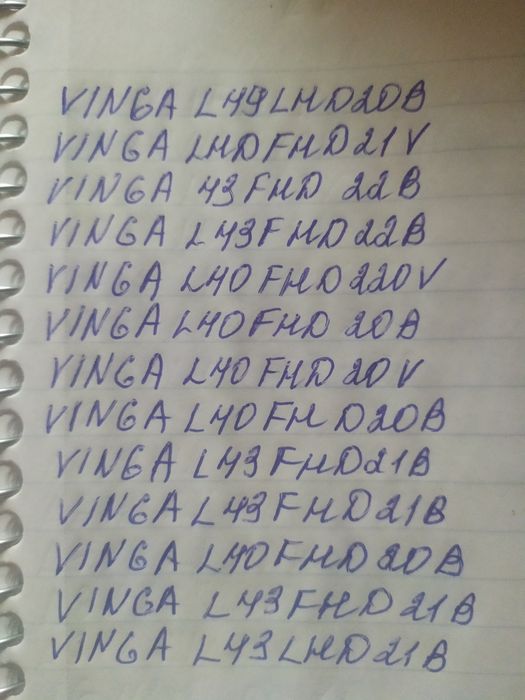 VINGA L49LHD20B
VINGA L40FHD21V
VINGA 43FHD 22B
VINGA L43FHD22B
VINGA L40FHD220V
VINGA L40FHD 20B
VINGA L40FHD20V
VINGA L40FHD20B
VINGA L43FHD21B
VINGA L43FHD21B
VINGA L40FHD20B
VINGA L43FHD21B
VINGA L43LHD21B